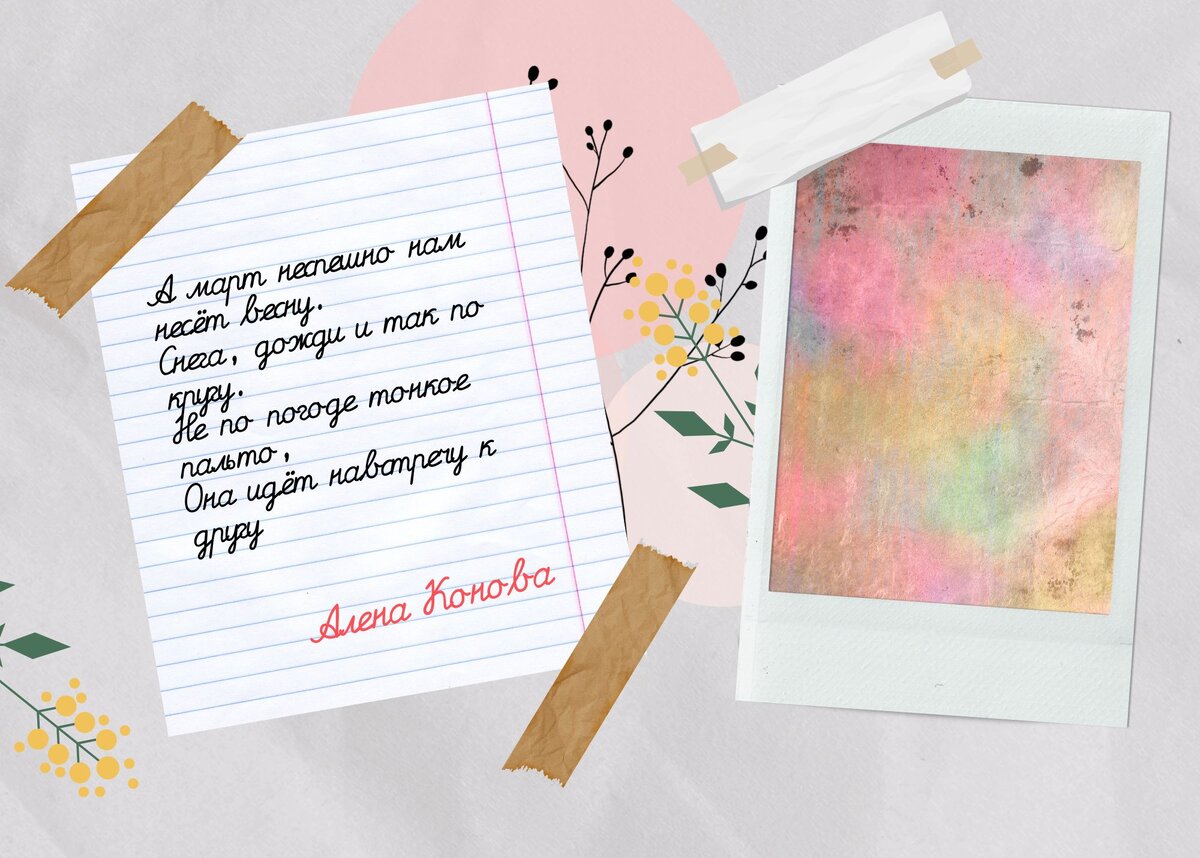 А март неспешно нам
несёт весну.
Снега, дожди и так по
кругу.
Не по погоде тонкое
пальто,
Она идёт навстречу к
другу
Алена Конова